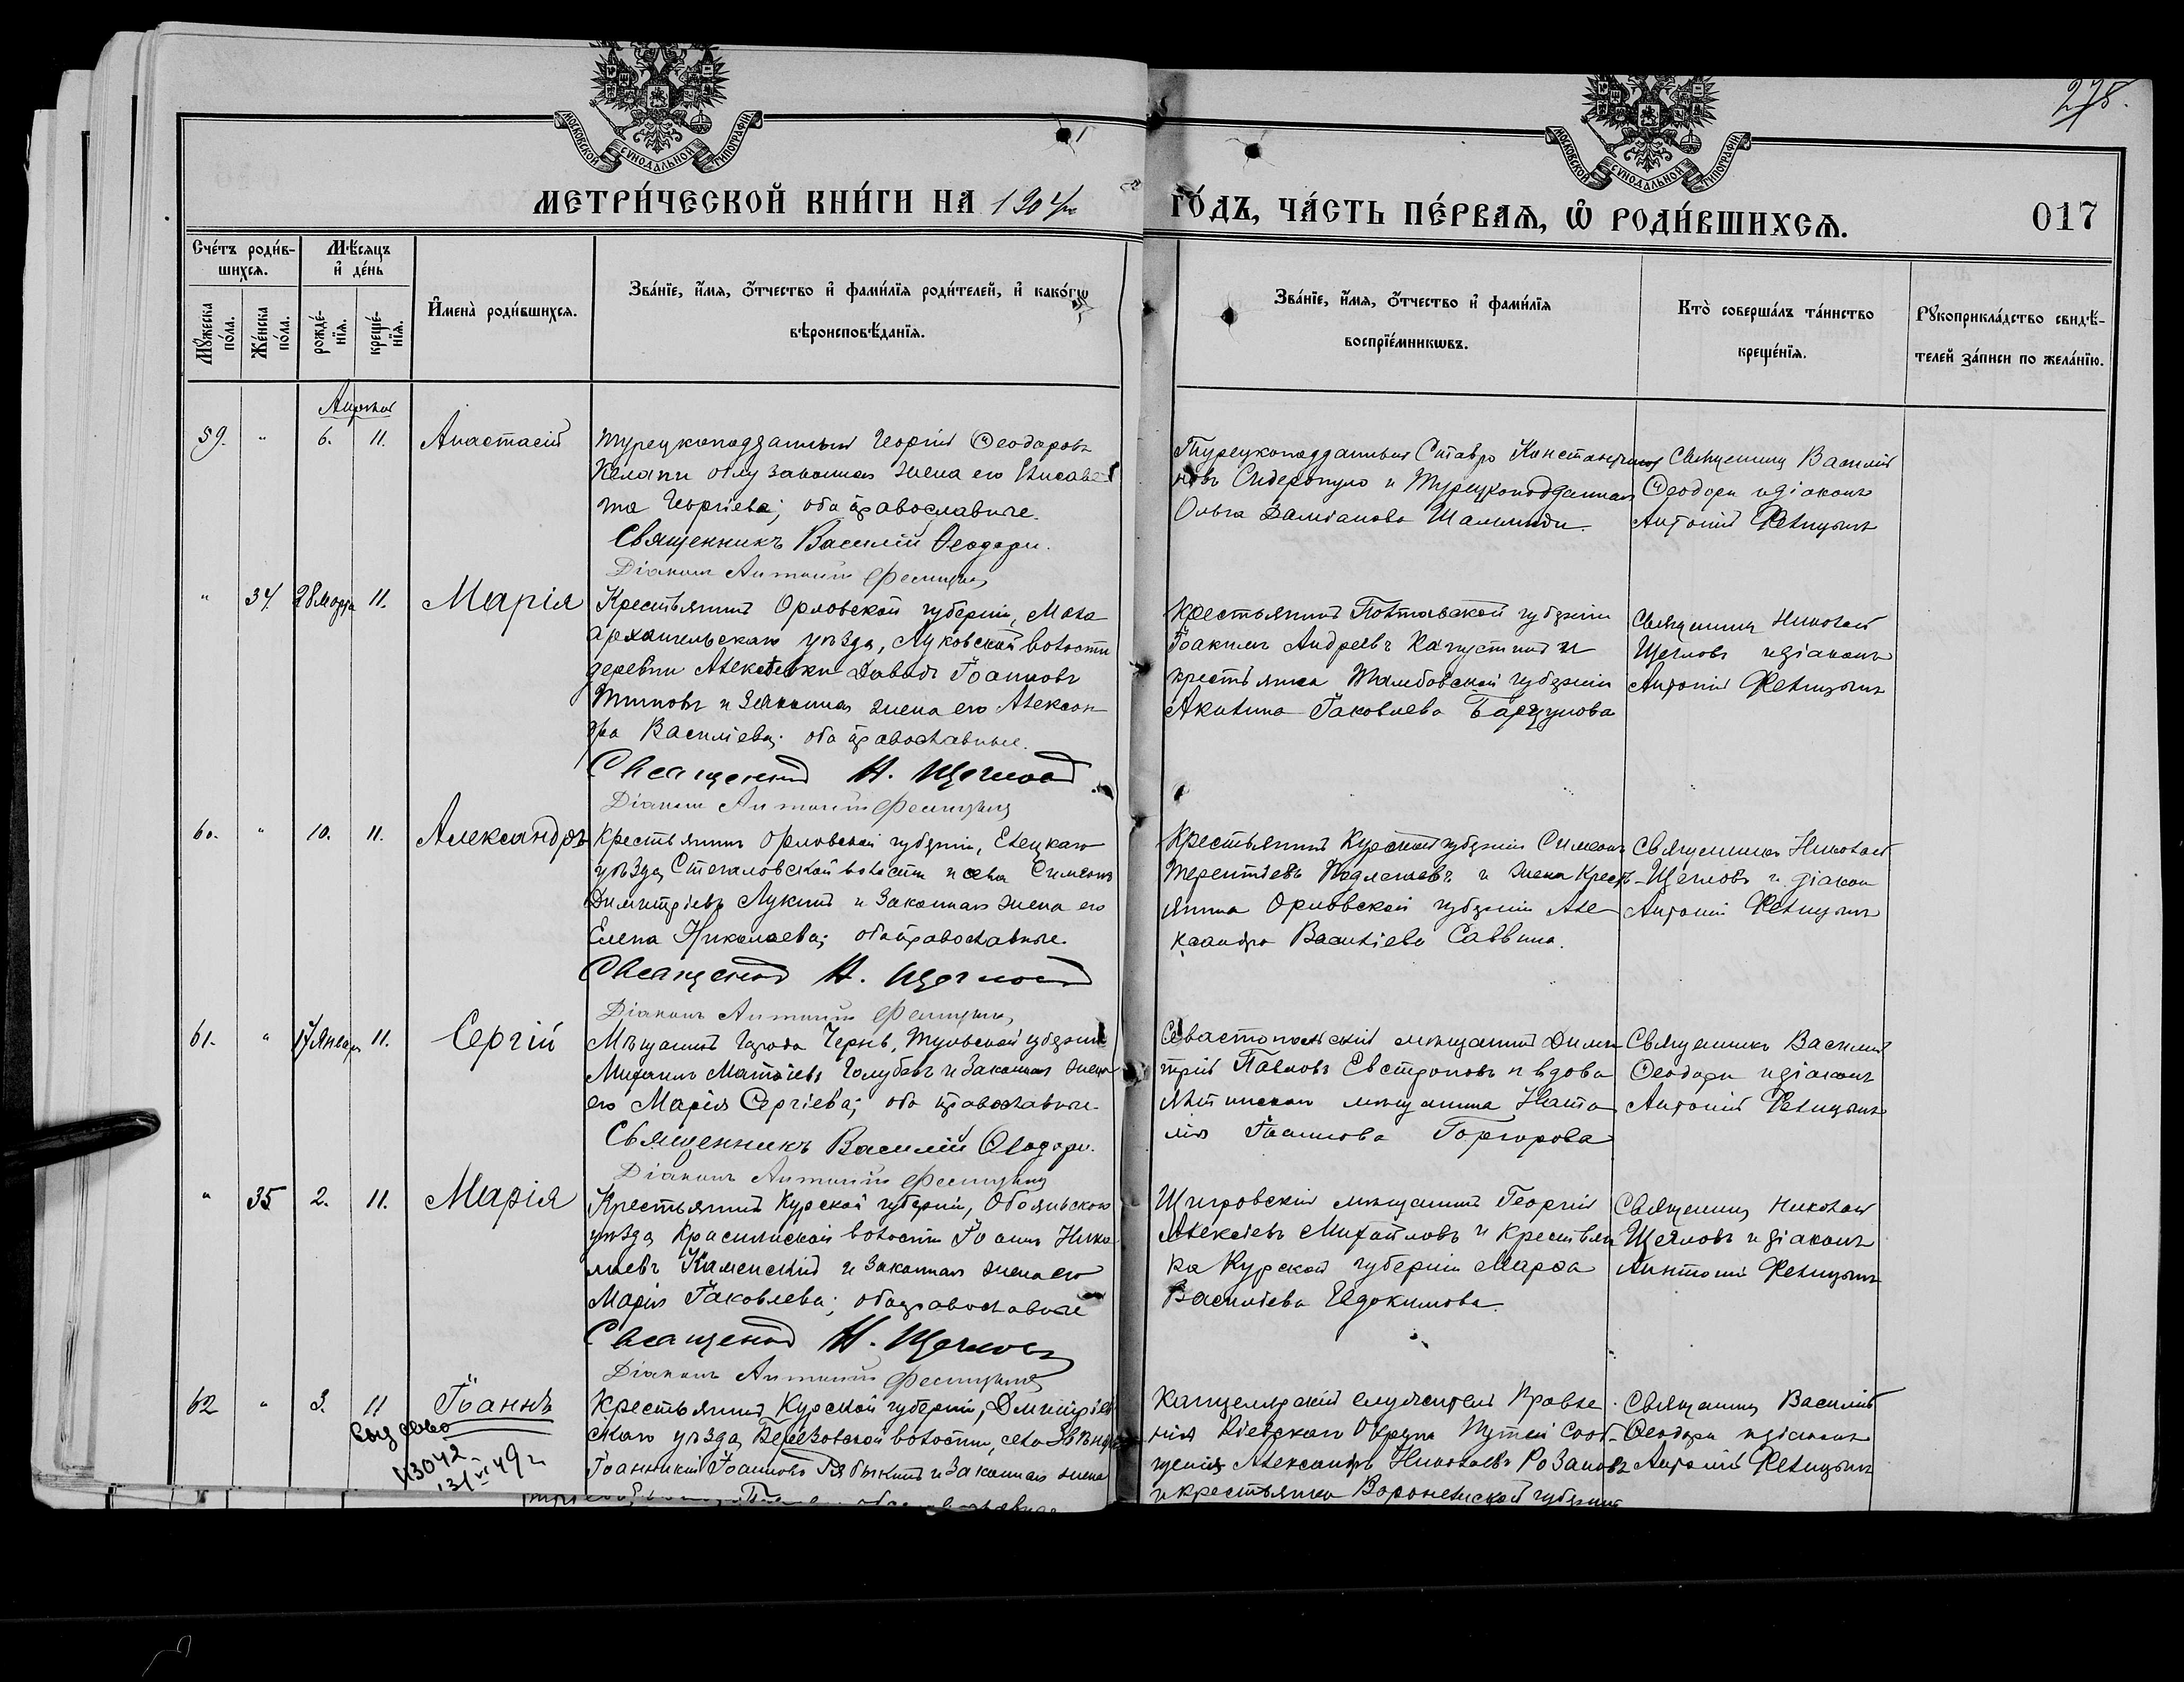 МОСКОВСКОЙ СѴНОДАЛЬНОЙ ТИПОГРАФІИ
МОСКОВСКОЙ СѴНОДАЛЬНОЙ ТИПОГРАФІИ
275.
МЕТРИ́ЧЕСКОЙ КНИ́ГИ НА 1904
ГО́ДЪ, ЧА́СТЬ ПЕ́РВАЯ, Ѡ҆ РОДИ́ВШИХСЯ.
017
Сче́тъ роди́в-
шихся.
Мѣ́сяцъ
и҆ де́нь
Мꙋ́жеска
по́ла.
Же́нска
по́ла.
рожде́-
нїя.
креще́-
нїя.
И҆мена̀ роди́вшихся.
Зва́нїе, и҆́мя, ѻ҆́тчество и҆ фами́лїя роди́телей, и҆ како́гѡ
вѣроисповѣ́данїя.
Зва́нїе, и҆́мя, ѻ҆́тчество и҆ фами́лїя
воспрїе́мникѡвъ.
Кто̀ соверша́лъ та́инство
креще́нїя.
Рꙋкоприкла́дство свидѣ́-
телей за́писи по жела́нїю.
Апрѣля
59. " 6. 11. Анастасій
Турецкоподданный Георгій Ѳеодоровъ
Келапи оглу законная жена его Елисаве
та Георгіева; оба православные.
Священникъ Василій Ѳеодори.
Діаконъ Антоній Феницынъ
Турецкоподданный Ставро Константи
новъ Сидеропуло и Турецкоподданная
Ольга Даміанова
Священникъ Василій
Ѳеодори и діаконъ
Антоній Феницынъ
" 34. 28 Марта 11. Марія
Крестьянинъ Орловской губерніи, Мало
архангельскаго уѣзда, Луковской волости
деревни Алексѣевки Давидъ Іоанновъ
Титовъ и Законная жена его Алексан
дра Василіева; оба православные.
Священникъ Н. Щегловъ
Діаконъ Антоній Феницынъ
Крестьянинъ Полтавской губерніи
Іоакимъ Андреевъ Капустинъ и
крестьянка Тамбовской губерніи
Акилина Іаковлева
Священникъ Николай
Щегловъ и діаконъ
Антоній Феницынъ
60. " 10. 11. Александръ
Крестьянинъ Орловской губерніи, Елецкаго
уѣзда, Стегаловской волости и села Симеонъ
Димитріевъ Лукинъ и Законная жена его
Елена Николаева; оба православные.
Священникъ Н. Щегловъ
Діаконъ Антоній Феницынъ
Крестьянинъ Курской губерніи Симеонъ
Терентіевъ и жена Крест-
янина Орловской губерніи Але
ксандра Василіева Саввина.
Священникъ Николай
Щегловъ и діаконъ
Антоній Феницынъ
61. " 17 Января 11. Сергій
Мѣщанинъ Города Чернь, Тульской губерніи
Михаилъ Матѳіевъ Голубевъ и Законная жена
его Марія Сергіева; оба православные.
Священникъ Василій Ѳеодори.
Діаконъ Антоній Феницынъ
Севастопольскій мѣщанинъ Дими
трій Павловъ Евстроповъ и вдова
Ялтинская мѣщанка Ната
лія Іоаннова
Священникъ Василій
Ѳеодори и діаконъ
Антоній Феницынъ
" 35 2. 11. Марія
Крестьянинъ Курской губерніи, Обоянскаго
уѣзда, волости Іоаннъ Нико
лаевъ Каменскій и Законная жена его
Марія Іаковлева; оба православные
Священникъ Н. Щегловъ
Діаконъ Антоній Феницынъ
Щигровскій мѣщанинъ Георгій
Алексѣевъ Михайловъ и Крестьян
ка Курской губерніи Марѳа
Василіева Евдокимова.
Священникъ Николай
Щегловъ и діаконъ
Антоній Феницынъ
62 " 3. 11 Іоаннъ
43042
Крестьянинъ Курской губерніи, Дмитріев
скаго уѣзда, Березовской волости, села
Іоанникій Іоанновъ и Законная жена
Канцелярскій служитель Правле
нія Кіевскаго Округа Путей Сооб-
щенія Александръ Николаевъ Розановъ
и крестьянка Воронежской губерніи
Священникъ Василій
Ѳеодори и діаконъ
Антоній Феницынъ